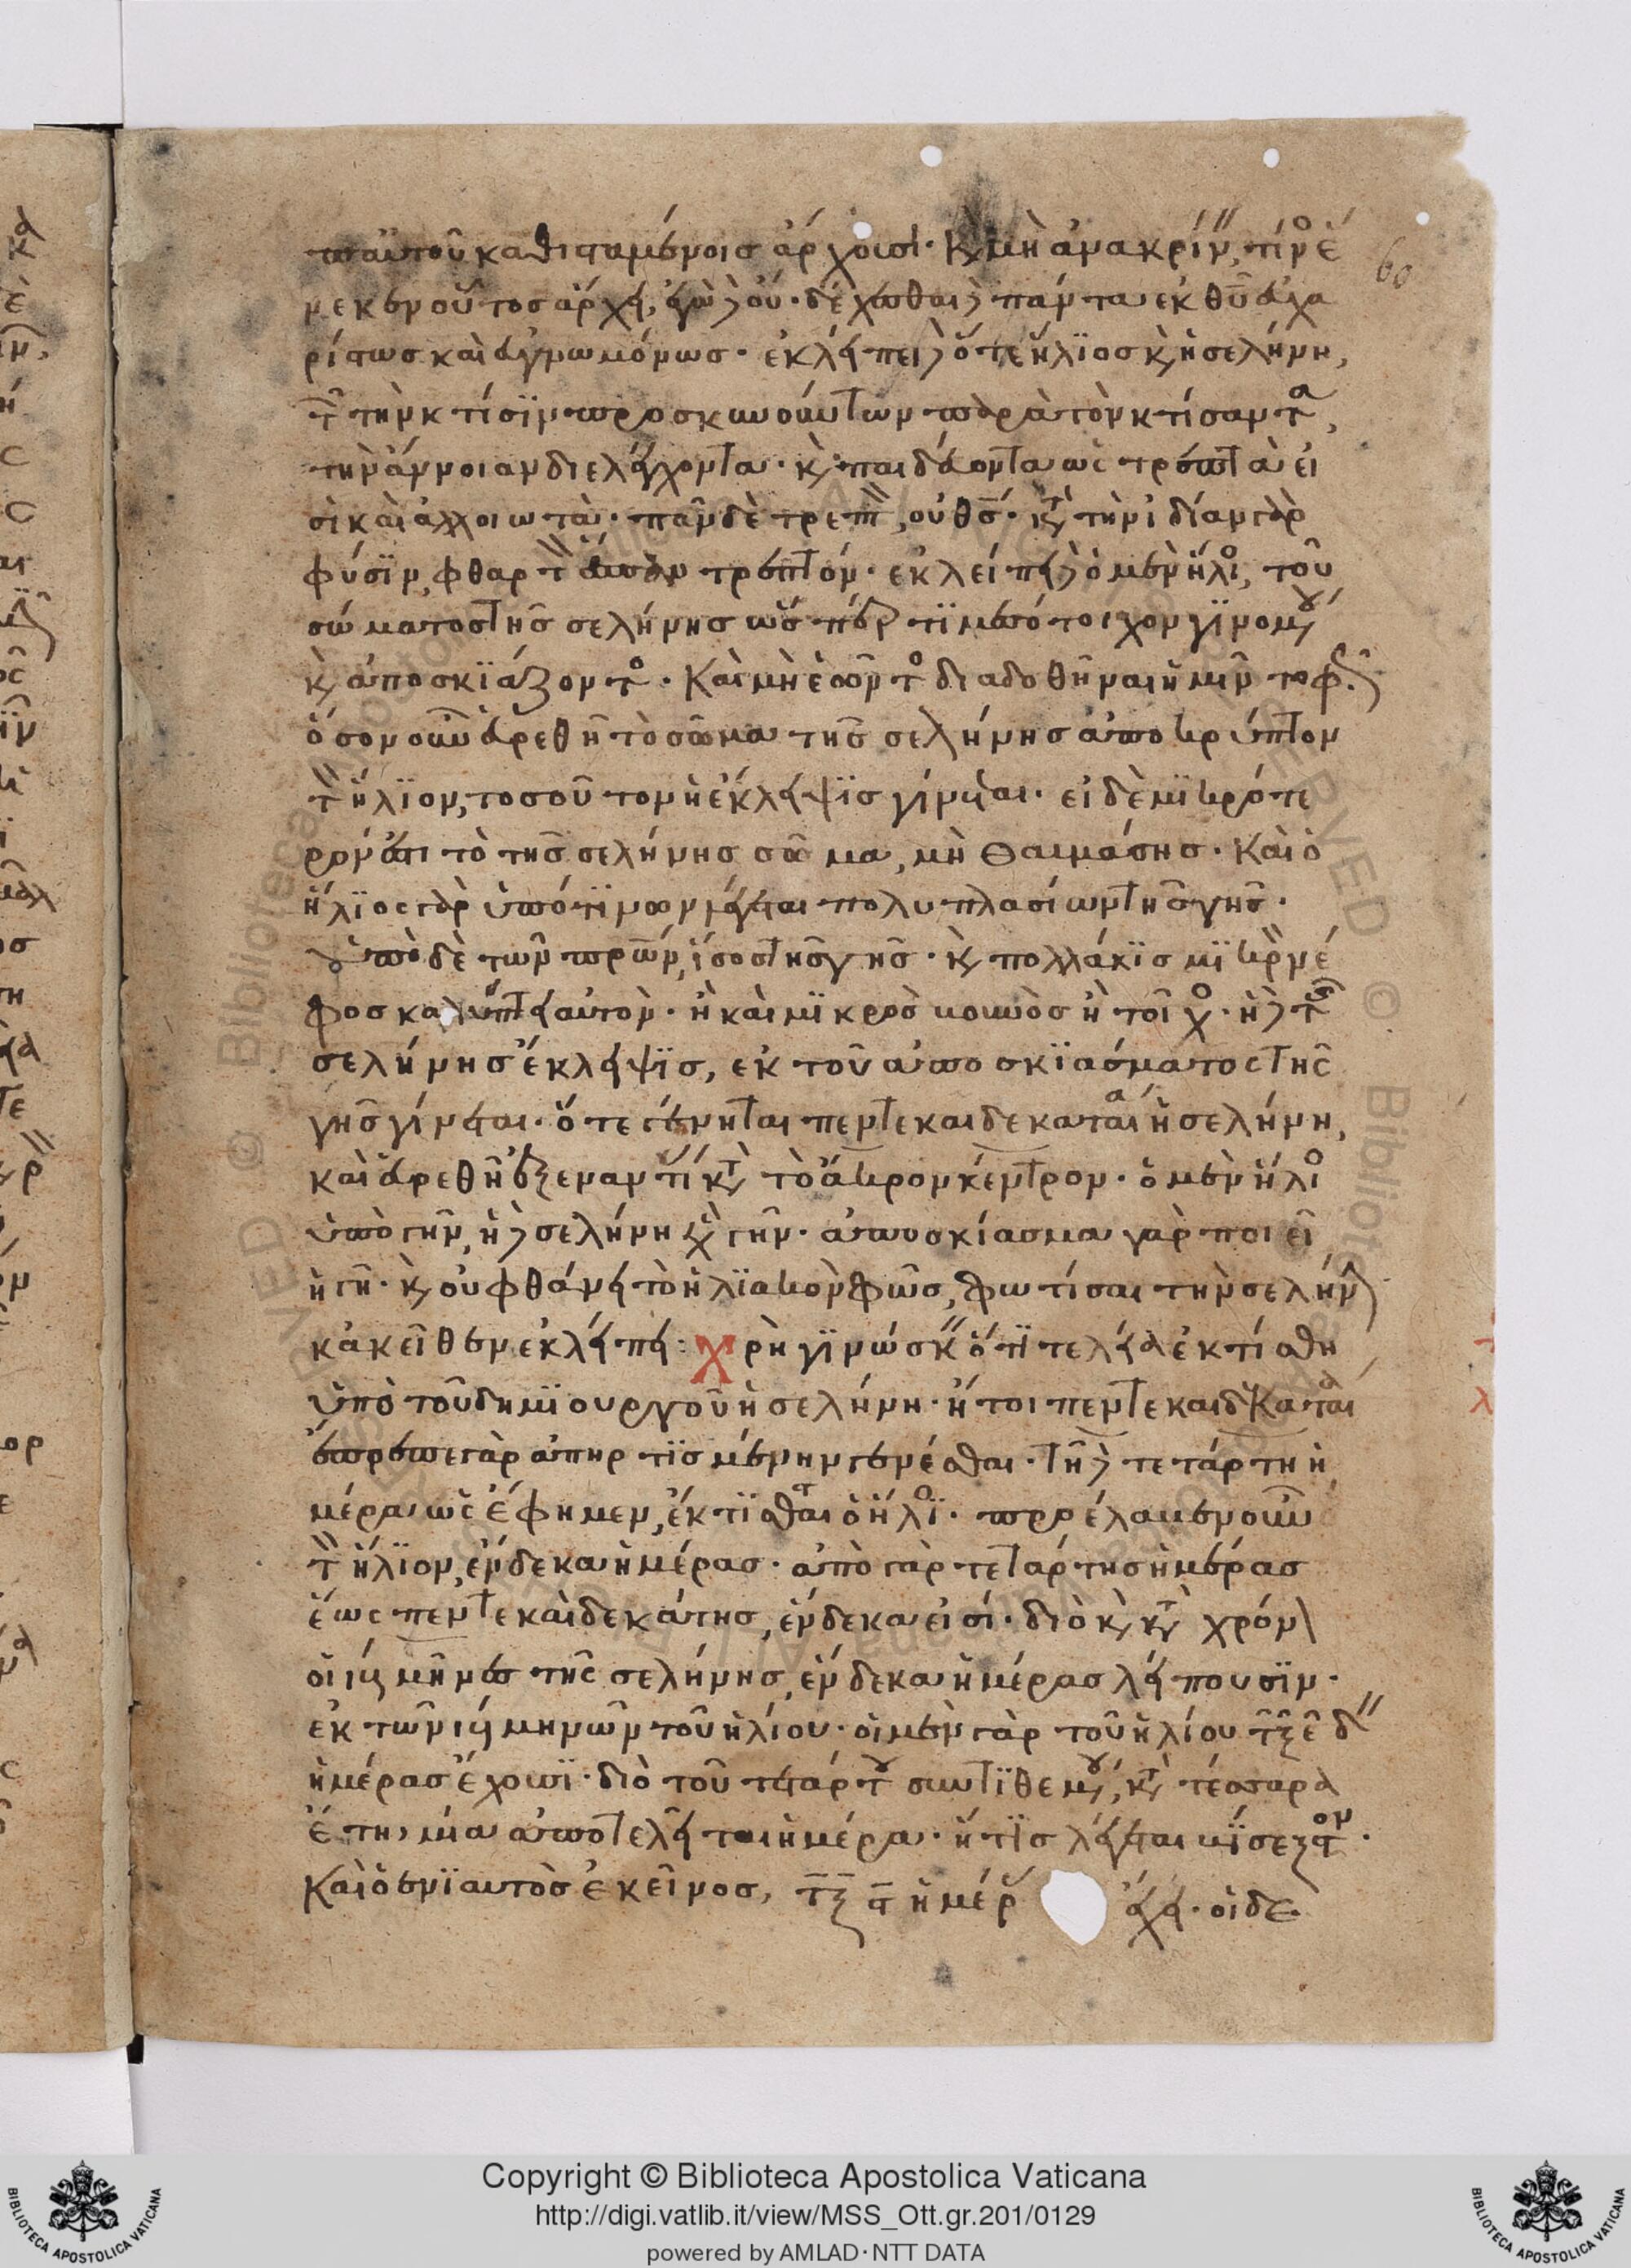 παὐτοῦ καθισταμένοις ἄρχουσι· κ(αὶ) μὴ ἀνακρίν(ειν), τίν(ος) ἕ
νεκεν οὗτος ἄρχει, ἐγὼ δὲ οὔ· δέχεσθαι δὲ πάντα ἐκ θ(εο)ῦ εὐχα
ρίστως καὶ εὐγνωμόνως· ἐκλείπει δὲ ὅ τε ἥλϊος κ(αὶ) ἡ σελήνη,
τ(ῶν) τὴν κτίσϊν προσκυνούντων παρὰ τὸν κτίσαντα,
τὴν ἄνοιαν διελέγχοντα· κ(αὶ) παιδεύοντα ὡς τρεπτὰ εἰ
σὶ καὶ ἀλλοιωτά· πᾶν δὲ τρεπτ(ὸν), οὐ θ(εό)ς· κ(α)τ(ὰ) τὴν ἰδίαν γὰρ
φύσϊν, φθαρτ(ὸν) ἅπαν τρεπτόν· ἐκλείπει δὲ ὁ μὲν ἥλι(ος), τοῦ
σώματος τῆς σελήνης ὥσπερ τϊ μεσότοιχον γϊνομ(έν)ου
κ(αὶ) ἀποσκϊάζοντο(ς)· Καὶ μὴ ἐῶντο(ς) διαδοθῆναι ἡμῖν τὸ φ(ῶς)
ὅσον οὖν εὑρεθῆ τὸ σῶμα τῆς σελήνης ἀποκρύπτον
τ(ὸν) ἥλϊον, τοσοῦτον ἡ ἔκλειψϊς γίνεται· εἰ δὲ μϊκρότε
ρόν ἐστι τὸ τῆς σελήνης σῶμα, μὴ θαυμάσης· Καὶ ὁ
ἥλϊος γὰρ ὑπό τϊνων λέγεται πολυπλασίων τῆς γῆς·
ὑπὸ δὲ τῶν π(ατέ)ρων, ἴσος τῆς γῆς· κ(αὶ) πολλάκϊς μϊκρὸν νέ
φος καλύπτει αὐτόν· ἢ καὶ μϊκρὸς βουνὸς ἢ τοῖχο(ς)· ἡ δὲ τῆς
σελήνης ἔκλειψϊς, ἐκ τοῦ ἀποσκϊάσματος τῆς
γῆς γίνεται· ὅτε γένηται πεντεκαιδεκαταία ἡ σελήνη,
καὶ εὑρεθῆ ἐξ ἐναντί(ας) κ(α)τ(ὰ) τὸ ἄκρον κέντρον· ὁ μὲν ἥλιο(ς)
ὑπὸ γῆν, ἡ δὲ σελήνη ὑπὲρ γῆν· ἀποσκίασμα γὰρ ποιεῖ
ἡ γῆ· κ(αὶ) οὐ φθάνει τὸ ἡλϊακὸν φῶς, φωτίσαι τὴν σελήν(ην)
κἀκεῖθεν ἐκλείπει: Χρὴ γϊνώσκ(ειν) ὅτϊ τελεία ἐκτίσθη
ὑπὸ τοῦ δημϊουργοῦ ἡ σελήνη· ἤτοι πεντεκαιδεκαταία
ἔπρεπε γὰρ ἀπηρτϊσμένην γενέσθαι· τῆ δὲ τετάρτη ἡ
μέρα ὡς ἔφημεν, ἔκτϊσται ὁ ἥλϊο(ς)· προέλαβεν οὖν
τ(ὸν) ἥλϊον, ἕνδεκα ἡμέρας· ἀπὸ γὰρ τετάρτης ἡμέρας
ἕως πεντεκαιδεκάτης, ἕνδεκα εἰσί· διὸ κ(αὶ) κ(α)τ(ὰ) χρόν(ον)
οἱ ιβ μῆνες τῆς σελήνης, ἕνδεκα ἡμέρας λείπουσϊν·
ἐκ τῶν ιβ μηνῶν τοῦ ἡλίου· οἱ μὲν γὰρ τοῦ ἡλίου τξε δ´´
ἡμέρας ἔχουσϊ· διὸ τοῦ τετάρτου συντϊθεμ(έν)ου, κ(α)τ(ὰ) τέσσαρα
ἔτη, μία ἀποτελεῖται ἡμέρα· ἥτϊς λέγεται βϊσεξστον·
Καὶ ὁ ἐνϊαυτὸς ἐκεῖνος, τξϛ ἡμέρ(ας) ἔχει· οἱ δὲ
60
Copyright © Biblioteca Apostolica Vaticana
http://digi.vatlib.it/view/MSS_Ott.gr.201/0129
powered by AMLAD·NTT DATA
BIBLIOTECA APOSTOLICA VATICANA
BIBLIOTECA APOSTOLICA VATICANA